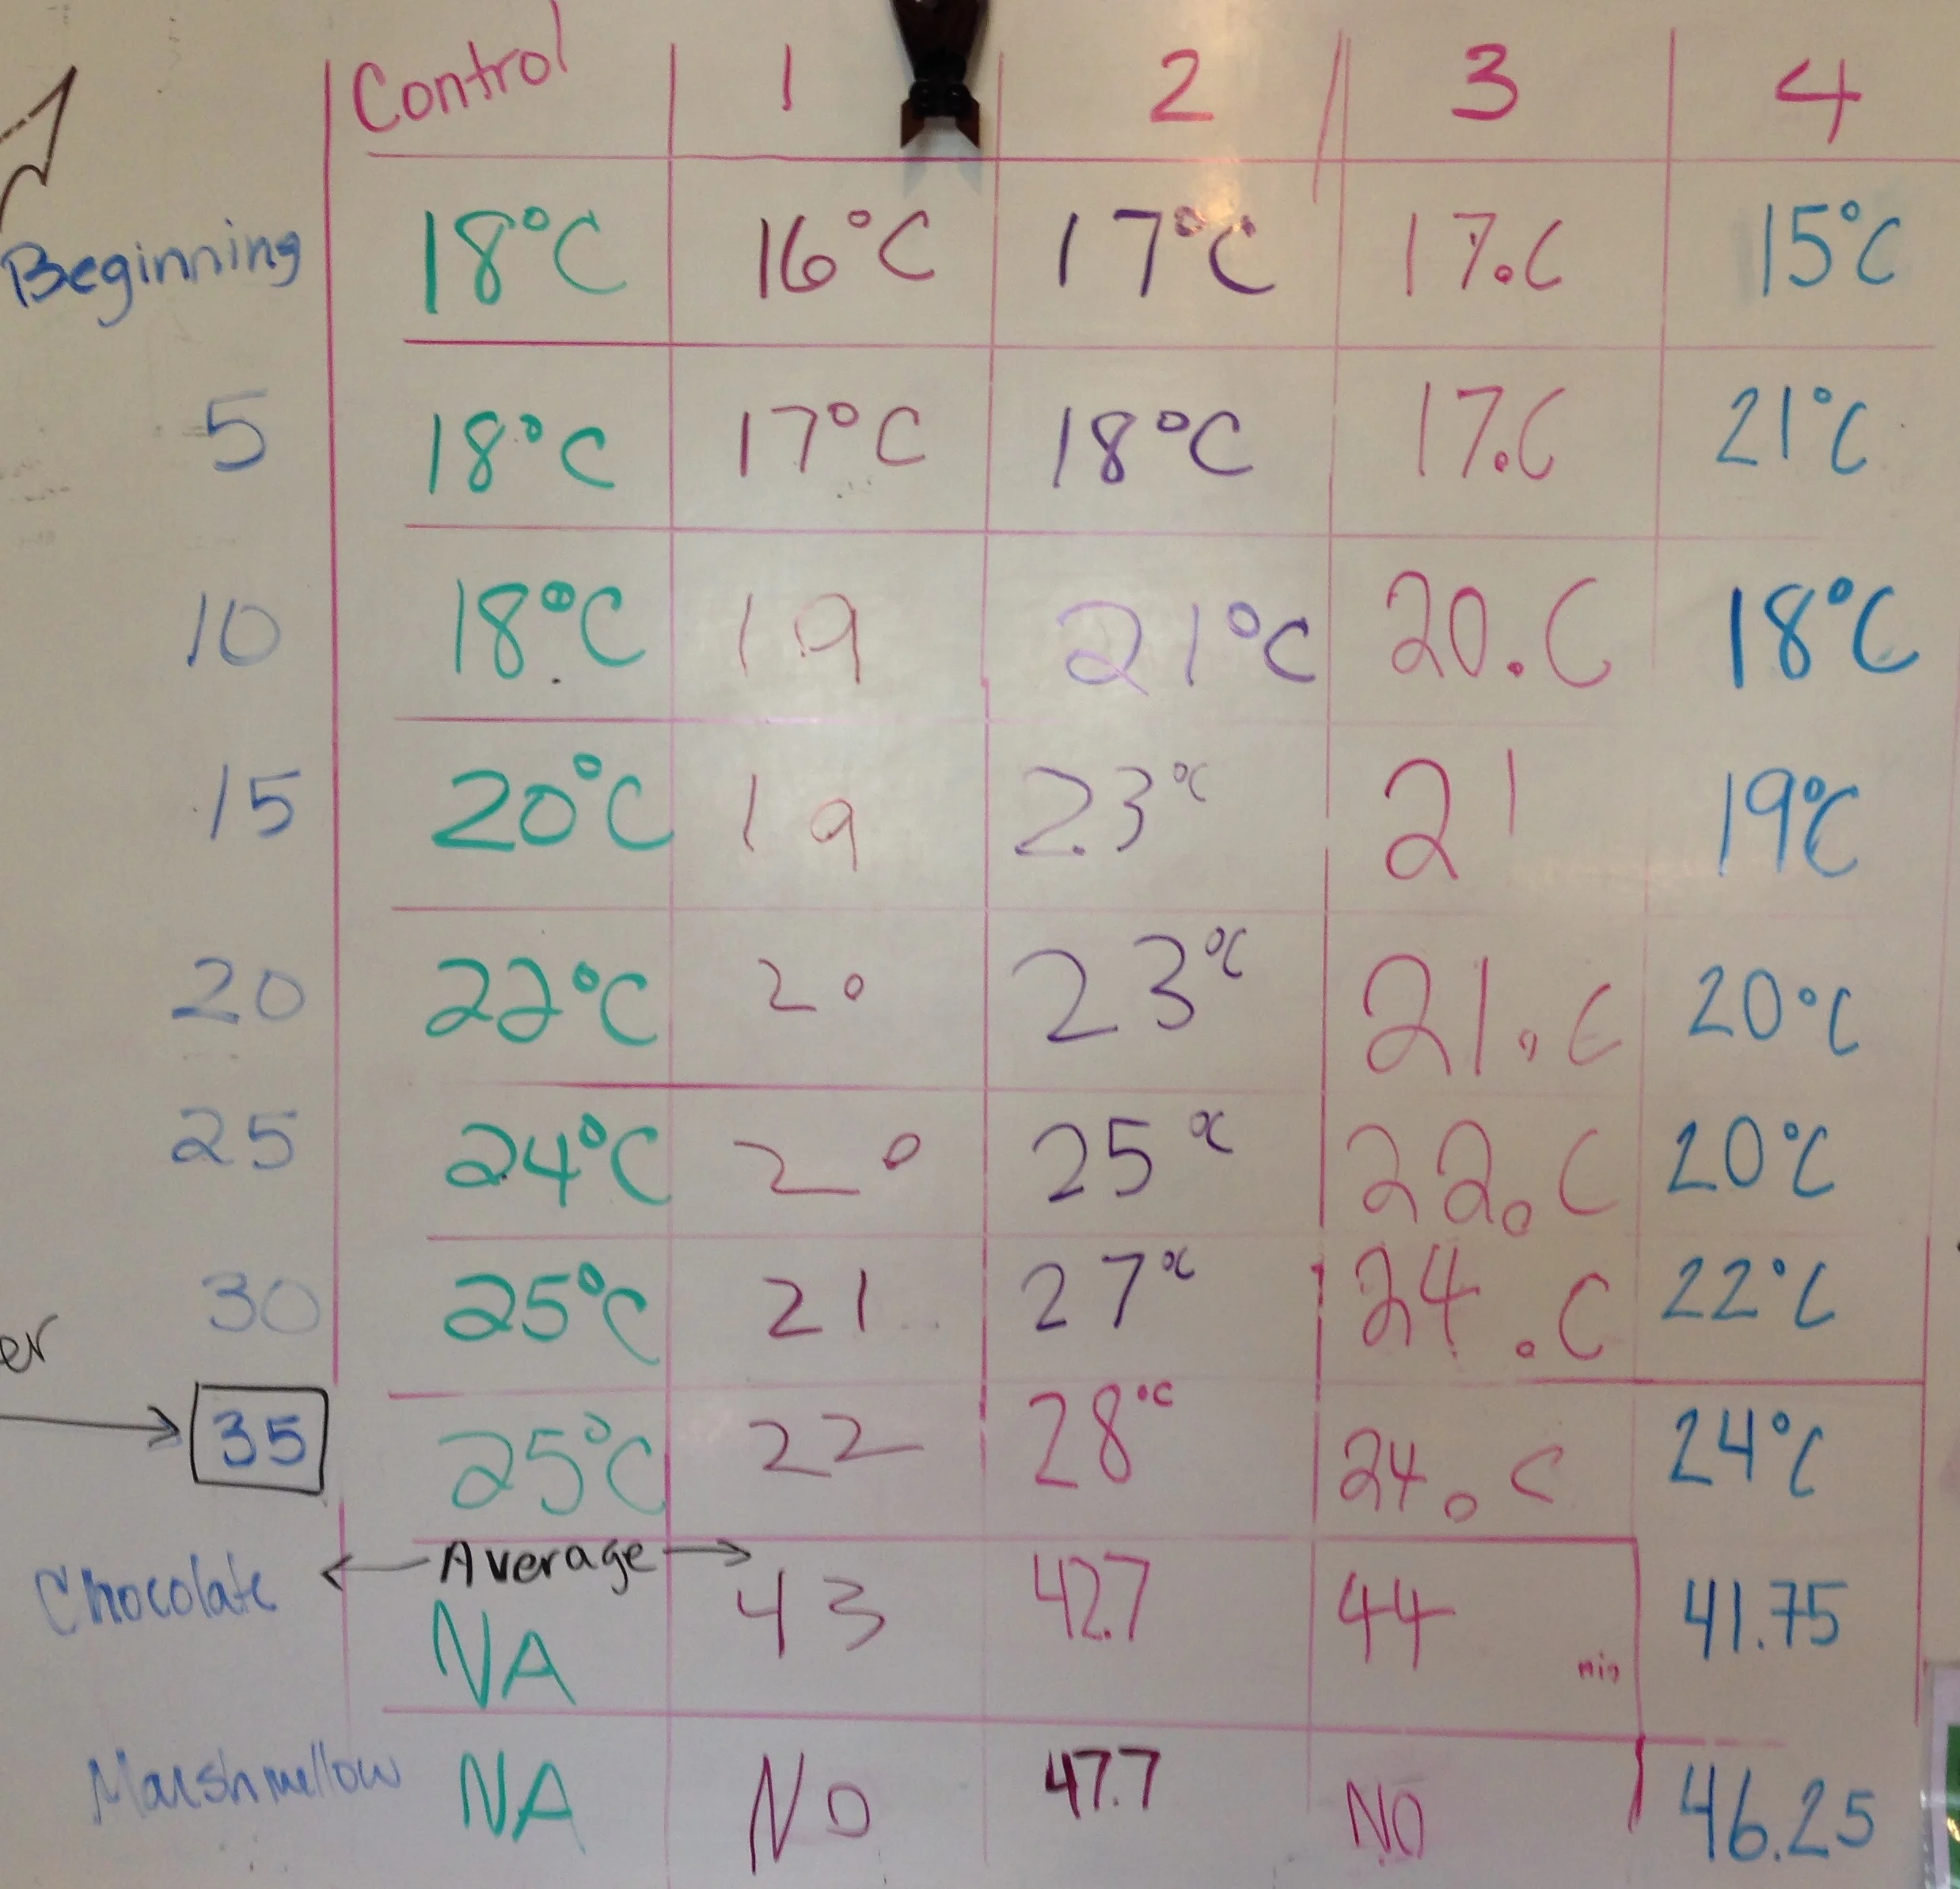 Control 1 2 3 4
Beginning 18°C 16°C 17°C 17.C 15°C
5 18°C 17°C 18°C 17.C 21°C
10 18°C 19 21°C 20.C 18°C
15 20°C 19 23°C 21 19°C
20 22°C 20 23°C 21.C 20°C
25 24°C 20 25°C 22.C 20°C
30 25°C 21 27°C 24.C 22°C
er
35 25°C 22 28°C 24.C 24°C
Average
Chocolate NA 43 42.7 44 min 41.75
Marshmellow NA NO 47.7 NO 46.25